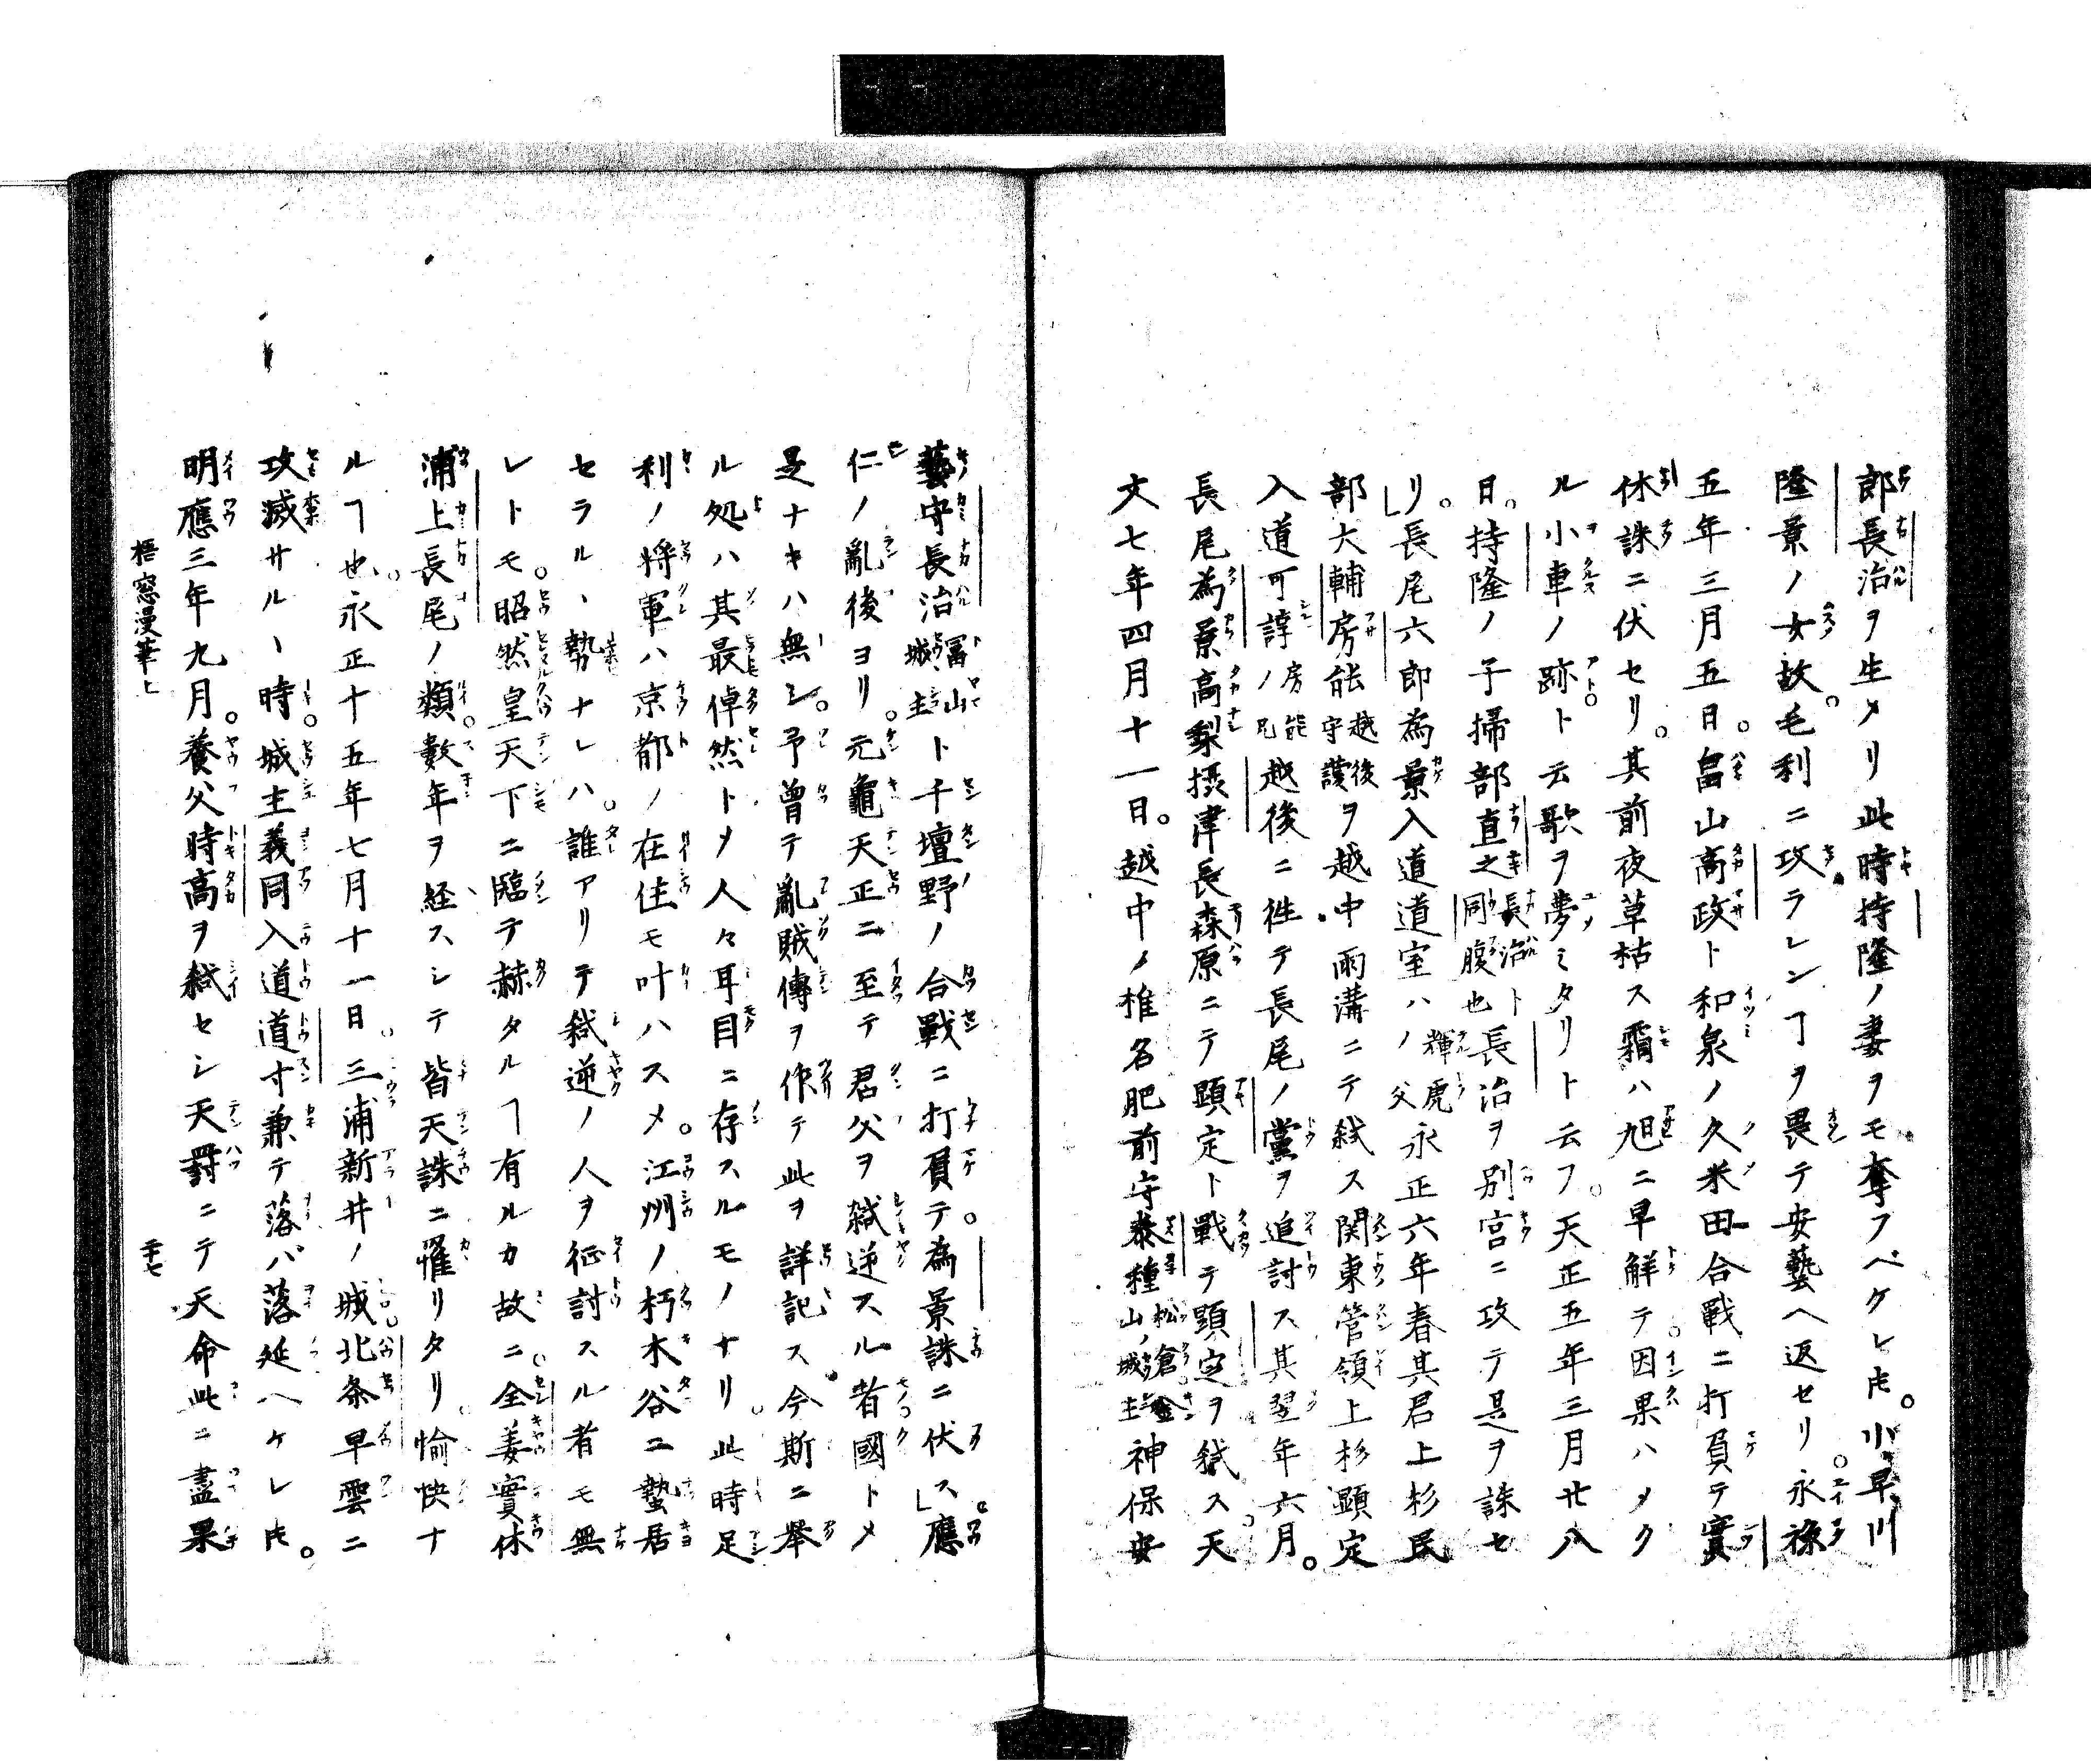 郎長治ヲ生メリ此時持隆ノ妻ヲモ奪フベケレ𪜈。小早川
隆景ノ女故。毛利ニ攻ラレンヿヲ畏テ安藝ヘ返セリ。永祿
五年三月五日。畠山高政ト和泉ノ久米田合戰ニ打負テ實
休誅ニ伏セリ。其前夜草枯ス霜ハ旭ニ早解テ。因果ハメク
ル小車ノ跡。ト云歌ヲ夢ミタリト云フ。天正五年三月廿八
日。持隆ノ子掃部直之長治ト同腹也長治ヲ別宮ニ攻テ是ヲ誅セ
リ。長尾六郎為景入道道室ハ輝虎ノ父永正六年春其君上杉民
部大輔房能越後守護ヲ越中雨溝ニテ弑ス関東管領上杉顕定
入道可諄房能ノ兄越後ニ徃テ長尾ノ黨ヲ追討ス其翌年六月。
長尾為景高梨摂津長森原ニテ顕定ト戰テ顕定ヲ弑ス。天
文七年四月十一日。越中ノ椎名肥前守泰種松倉金山ノ城主神保安
藝守長治冨山城主ト千壇野ノ合戰ニ打負テ。為景誅ニ伏ス。應
仁ノ亂後ヨリ。元龜天正ニ至テ君父ヲ弑逆スル者國トメ
是ナキハ無シ。予曾テ亂賊傳ヲ作テ此ヲ詳記ス今斯ニ舉
ル処ハ其最倬然トメ人々耳目ニ存スルモノナリ。此時足
利ノ将軍ハ京都ノ在住モ叶ハスメ。江州ノ朽木谷ニ蟄居
セラルヽ勢ナレハ。誰アリテ弑逆ノ人ヲ征討スル者モ無
レトモ。昭然皇天下ニ臨テ赫タルヿ有ルカ故ニ。全姜實休
浦上長尾ノ類。數年ヲ経スシテ皆天誅ニ罹リタリ。愉快ナ
ルヿ也。永正十五年七月十一日。三浦新井ノ城北条早雲ニ
攻滅サルヽ時。城主義同入道道寸兼テ落バ落延ヘケレ𪜈。
明應三年九月。養父時高ヲ弑セシ天罸ニテ天命此ニ盡果
梧窓漫筆上